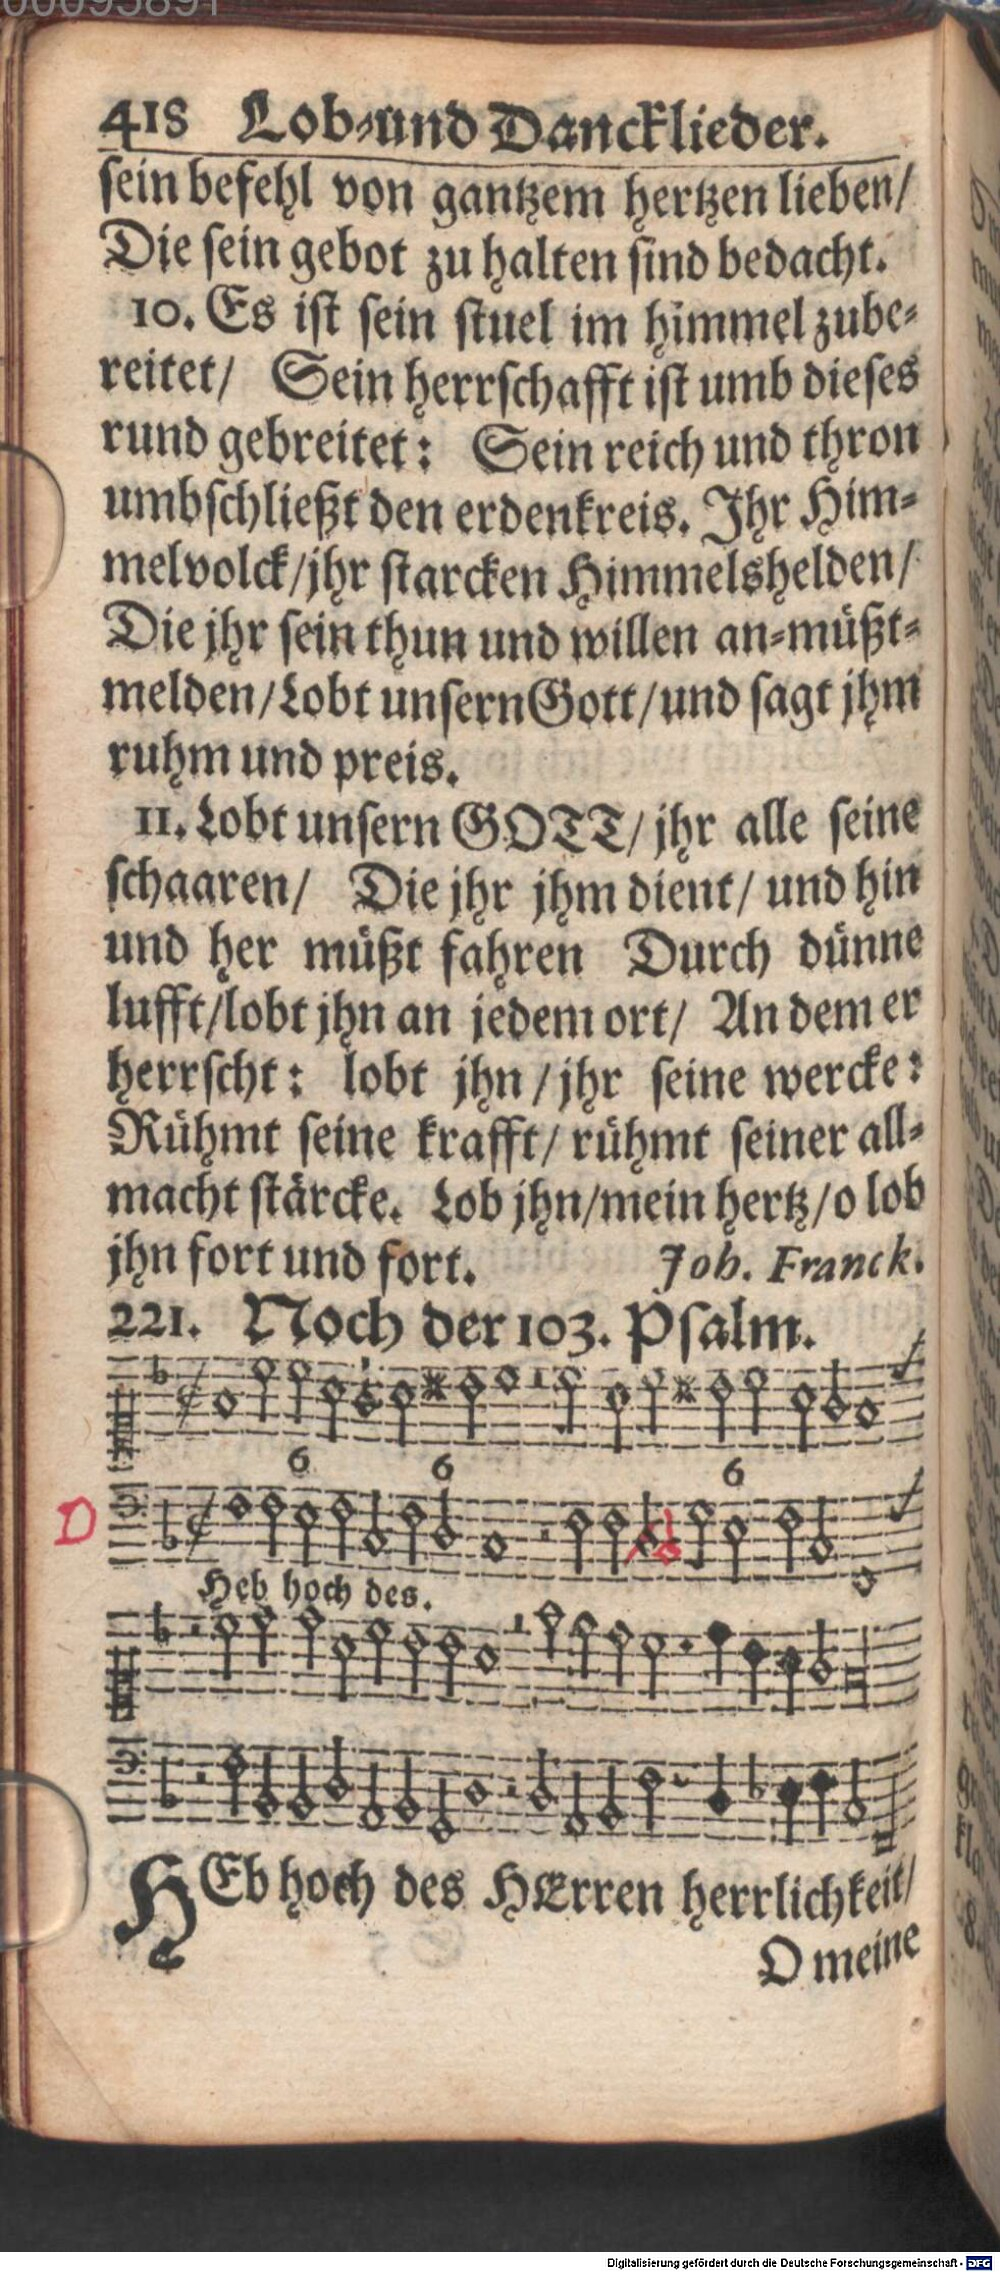 00095891
418 Lob-und Dancklieder.
sein befehl von gantzem hertzen lieben/
Die sein gebot zu halten sind bedacht.
10. Es ist sein stuel im himmel zube-
reitet/ Sein herrschafft ist umb dieses
rund gebreitet: Sein reich und thron
umbschließt den erdenkreis. Jhr Him-
melvolck/jhr starcken Himmelshelden/
Die jhr sein thun und willen an-müßt-
melden/Lobt unsern Gott/und sagt jhm
ruhm und preis.
11. Lobt unsern GOTT/ jhr alle seine
schaaren/ Die jhr jhm dient/ und hin
und her müßt fahren Durch dünne
lufft/lobt jhn an jedem ort/ An dem er
herrscht: lobt jhn/jhr seine wercke:
Rühmt seine krafft/ rühmt seiner all-
macht stärcke. Lob jhn/mein hertz/o lob
jhn fort und fort. Joh. Franck.
221. Noch der 103. Psalm.
6 6 6
D
Heb hoch des.
HEb hoch des HErren herrlichkeit/
O meine
Digitalisierung gefördert durch die Deutsche Forschungsgemeinschaft - DFG